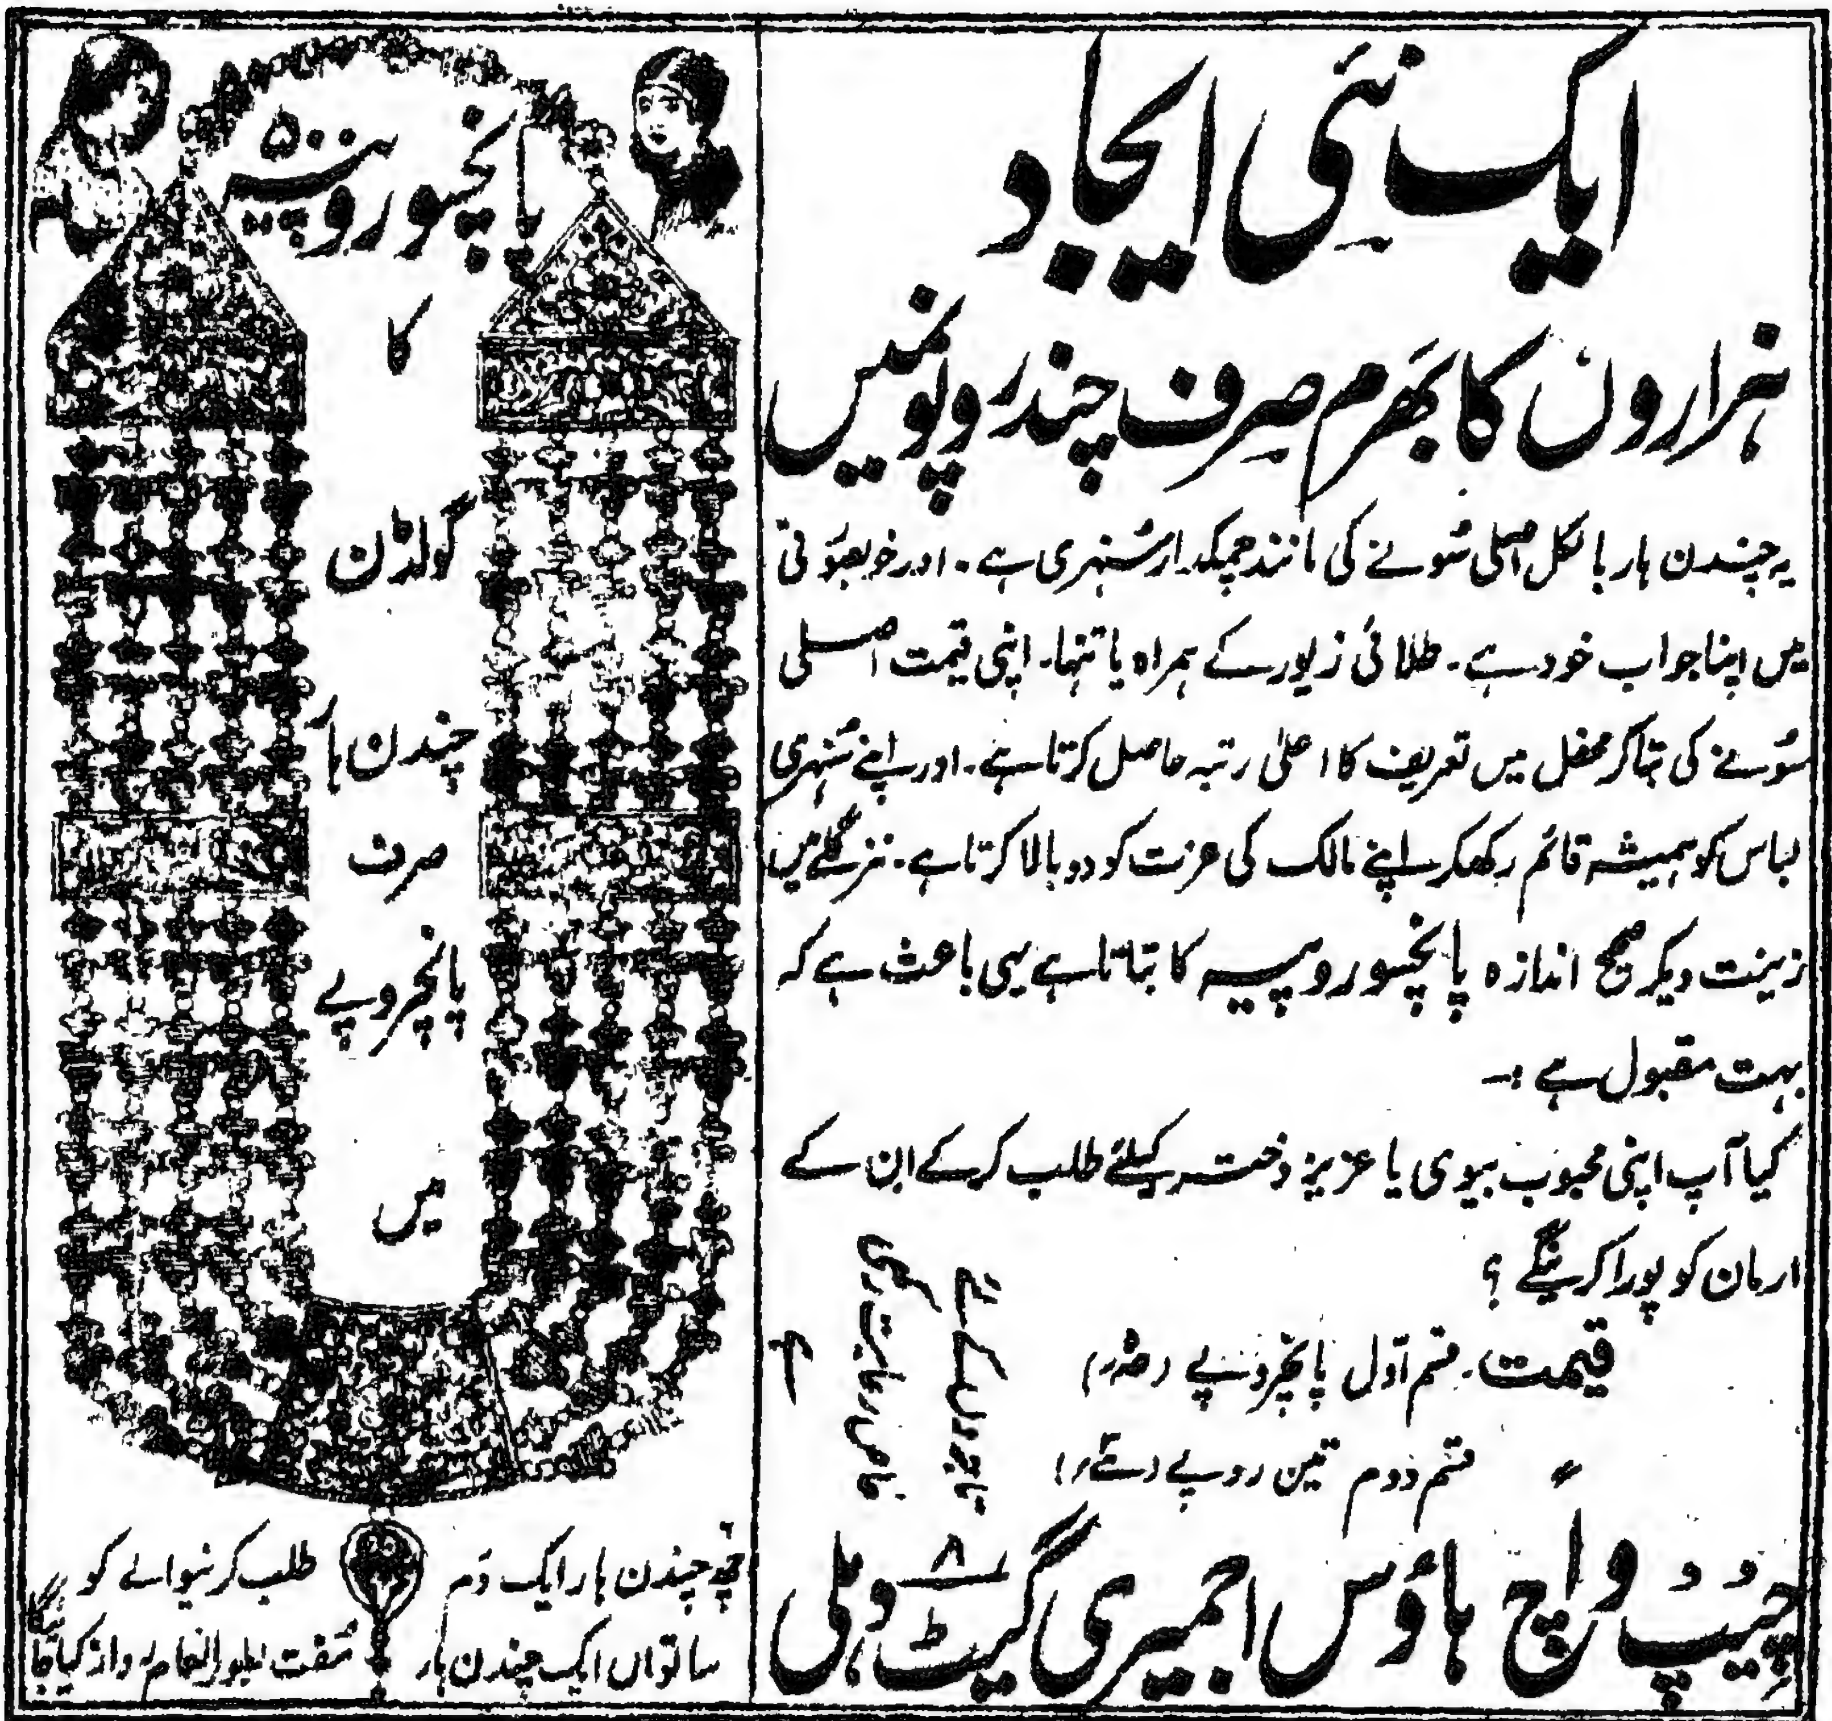 ایک نئی ایجاد
ہزارون کا بھرم صرف چند روپونمیں
یہ چندن ہار بالکل اصلی سونے کی مانند چمکدار سنہری ہے۔ اور خوبصورتی
میں اپنا جواب خود ہے۔ طلائی زیور کے ہمراہ یا تنہا۔ اپنی قیمت اصلی
سونے کی بتا کر محفل میں تعریف کا اعلیٰ رتبہ حاصل کرتا ہے۔ اور اپنے سنہری
لباس کو ہمیشہ قائم رکھکر اپنے مالک کی عزت کو دوبالا کرتا ہے۔ نیز گلے میں
زینت دیکر صحیح اندازہ پانچسو روپیہ کا بتاتا ہے یہی باعث ہے کہ
بہت مقبول ہے :۔
کیا آپ اپنی محبوب بیوی یا عزیز دختر کیلئے طلب کر کے ان کے
ارمان کو پورا کرینگے ؟
قیمت۔ قسم اول پانچروپے
〃 قسم دوم تین روپے
تاجروں کے لئے
خاص رعایت رکھی
ہے
چیپ واچ ہاؤس اجمیری گیٹ دہلی ۸
۵۰۰
پانچسو روپیہ
کا
گولڈن
چندن ہار
صرف
پانچروپے
میں
چھ چندن ہار ایک دم طلب کرنیوالے کو
ساتواں ایک چندن ہار مفت بطور انعام روانہ کیا جائیگا